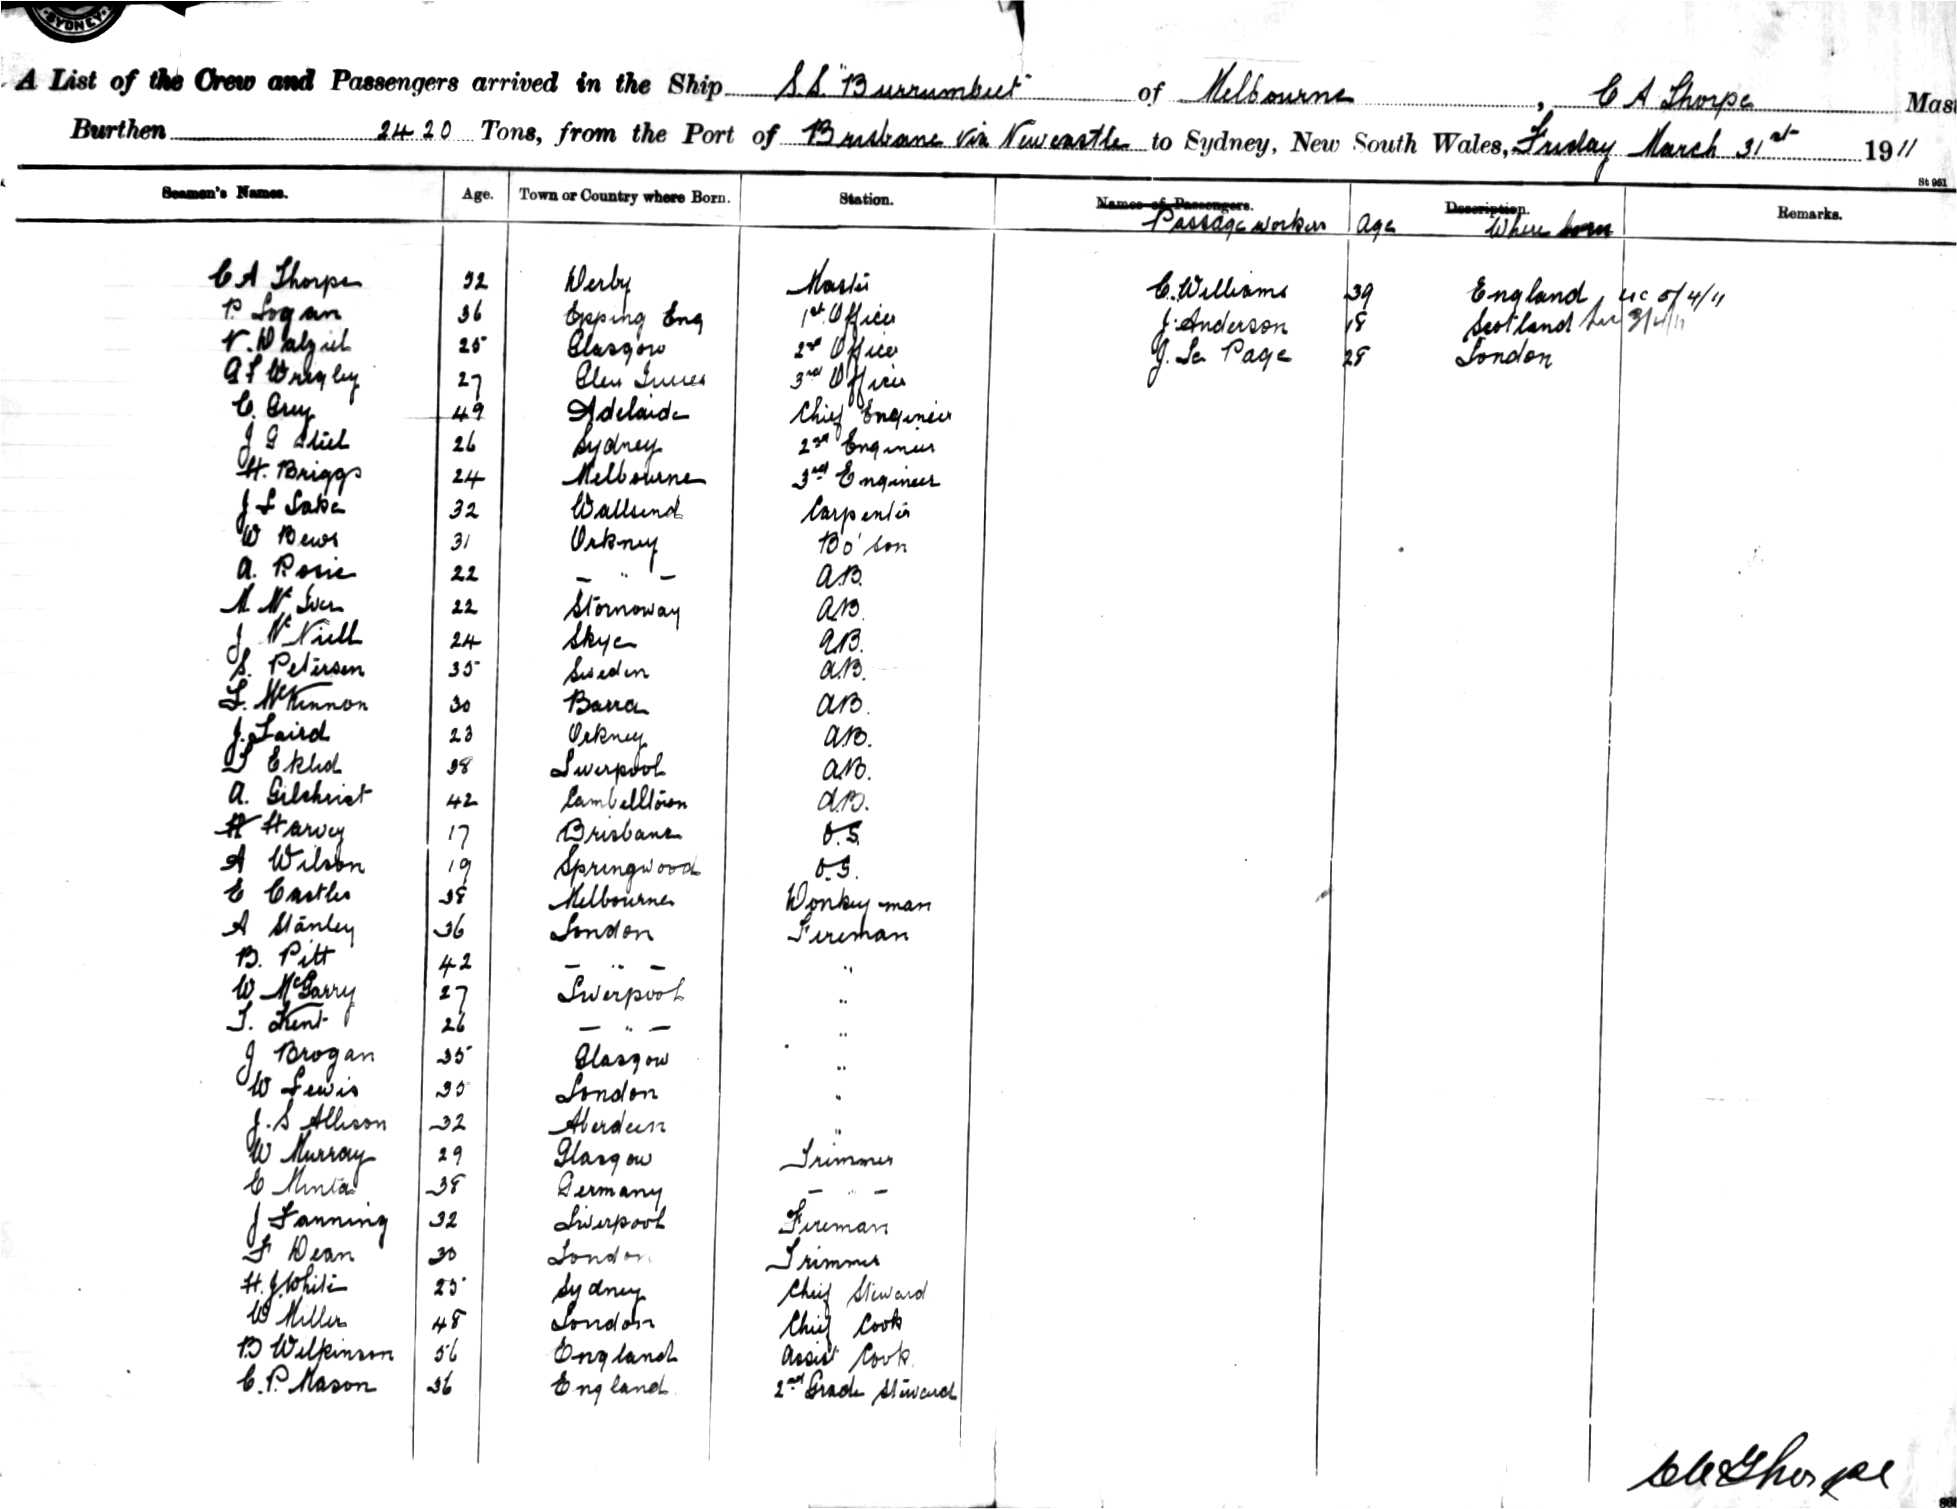 SYDNEY
A List of the Crew and Passengers arrived in the Ship S.S. "Burrumbeet" of Melbourne, C A Thorpe Mas
Burthen 2420 Tons, from the Port of Brisbane via Newcastle to Sydney, New South Wales, Friday March 31st 1911
St 961
Seamen's Names. Age. Town or Country where Born. Station. Names of Passengers. Description. Remarks.
Passage workers Age Where born
C A Thorpe 32 Derby Master C. Williams 39 England 5/4/11
P. Logan 36 Epping Eng 1st Officer J. Anderson 18 Scotland
N. Dalziel 25 Glasgow 2nd Officer J. Le Page 28 London
A F Wrigley 27 Glen Innes 3rd Officer
C. Grey 49 Adelaide Chief Engineer
J G 26 Sydney 2nd Engineer
H. Briggs 24 Melbourne 3rd Engineer
J L Lake 32 Wallsend Carpenter
W Bews 31 Orkney Bo'son
A. Rosie 22 – " – A.B.
M McIver 22 Stornoway A.B.
J McNiell 24 Skye A.B.
S. Petersen 35 Sweden A.B.
L. McKinnon 30 Barra A.B.
J. Laird 23 Orkney A.B.
38 Liverpool A.B.
A. Gilchrist 42 Cambelltown A.B.
H Harvey 17 Brisbane O.S.
A Wilson 19 Springwood O.S.
E Castles 38 Melbourne Donkey-man
A Stanley 36 London Fireman
B. Pitt 42 – " – "
W McGarry 27 Liverpool "
T. Kent 26 – " – "
J Brogan 35 Glasgow "
W Lewis 35 London "
J. S Allison 32 Aberdeen "
W Murray 29 Glasgow Trimmer
C 38 Germany – " –
J Fanning 32 Liverpool Fireman
F Dean 30 London Trimmer
H. J. White 25 Sydney Chief Steward
W Miller 48 London Chief Cook
B Wilkinson 56 England Assist Cook
C. P. Mason 36 England 2nd Grade Steward
C A Thorpe